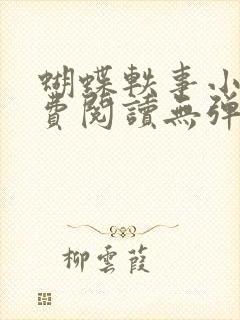 蝴蝶軼事小
費閱讀無彈
柳雲葭